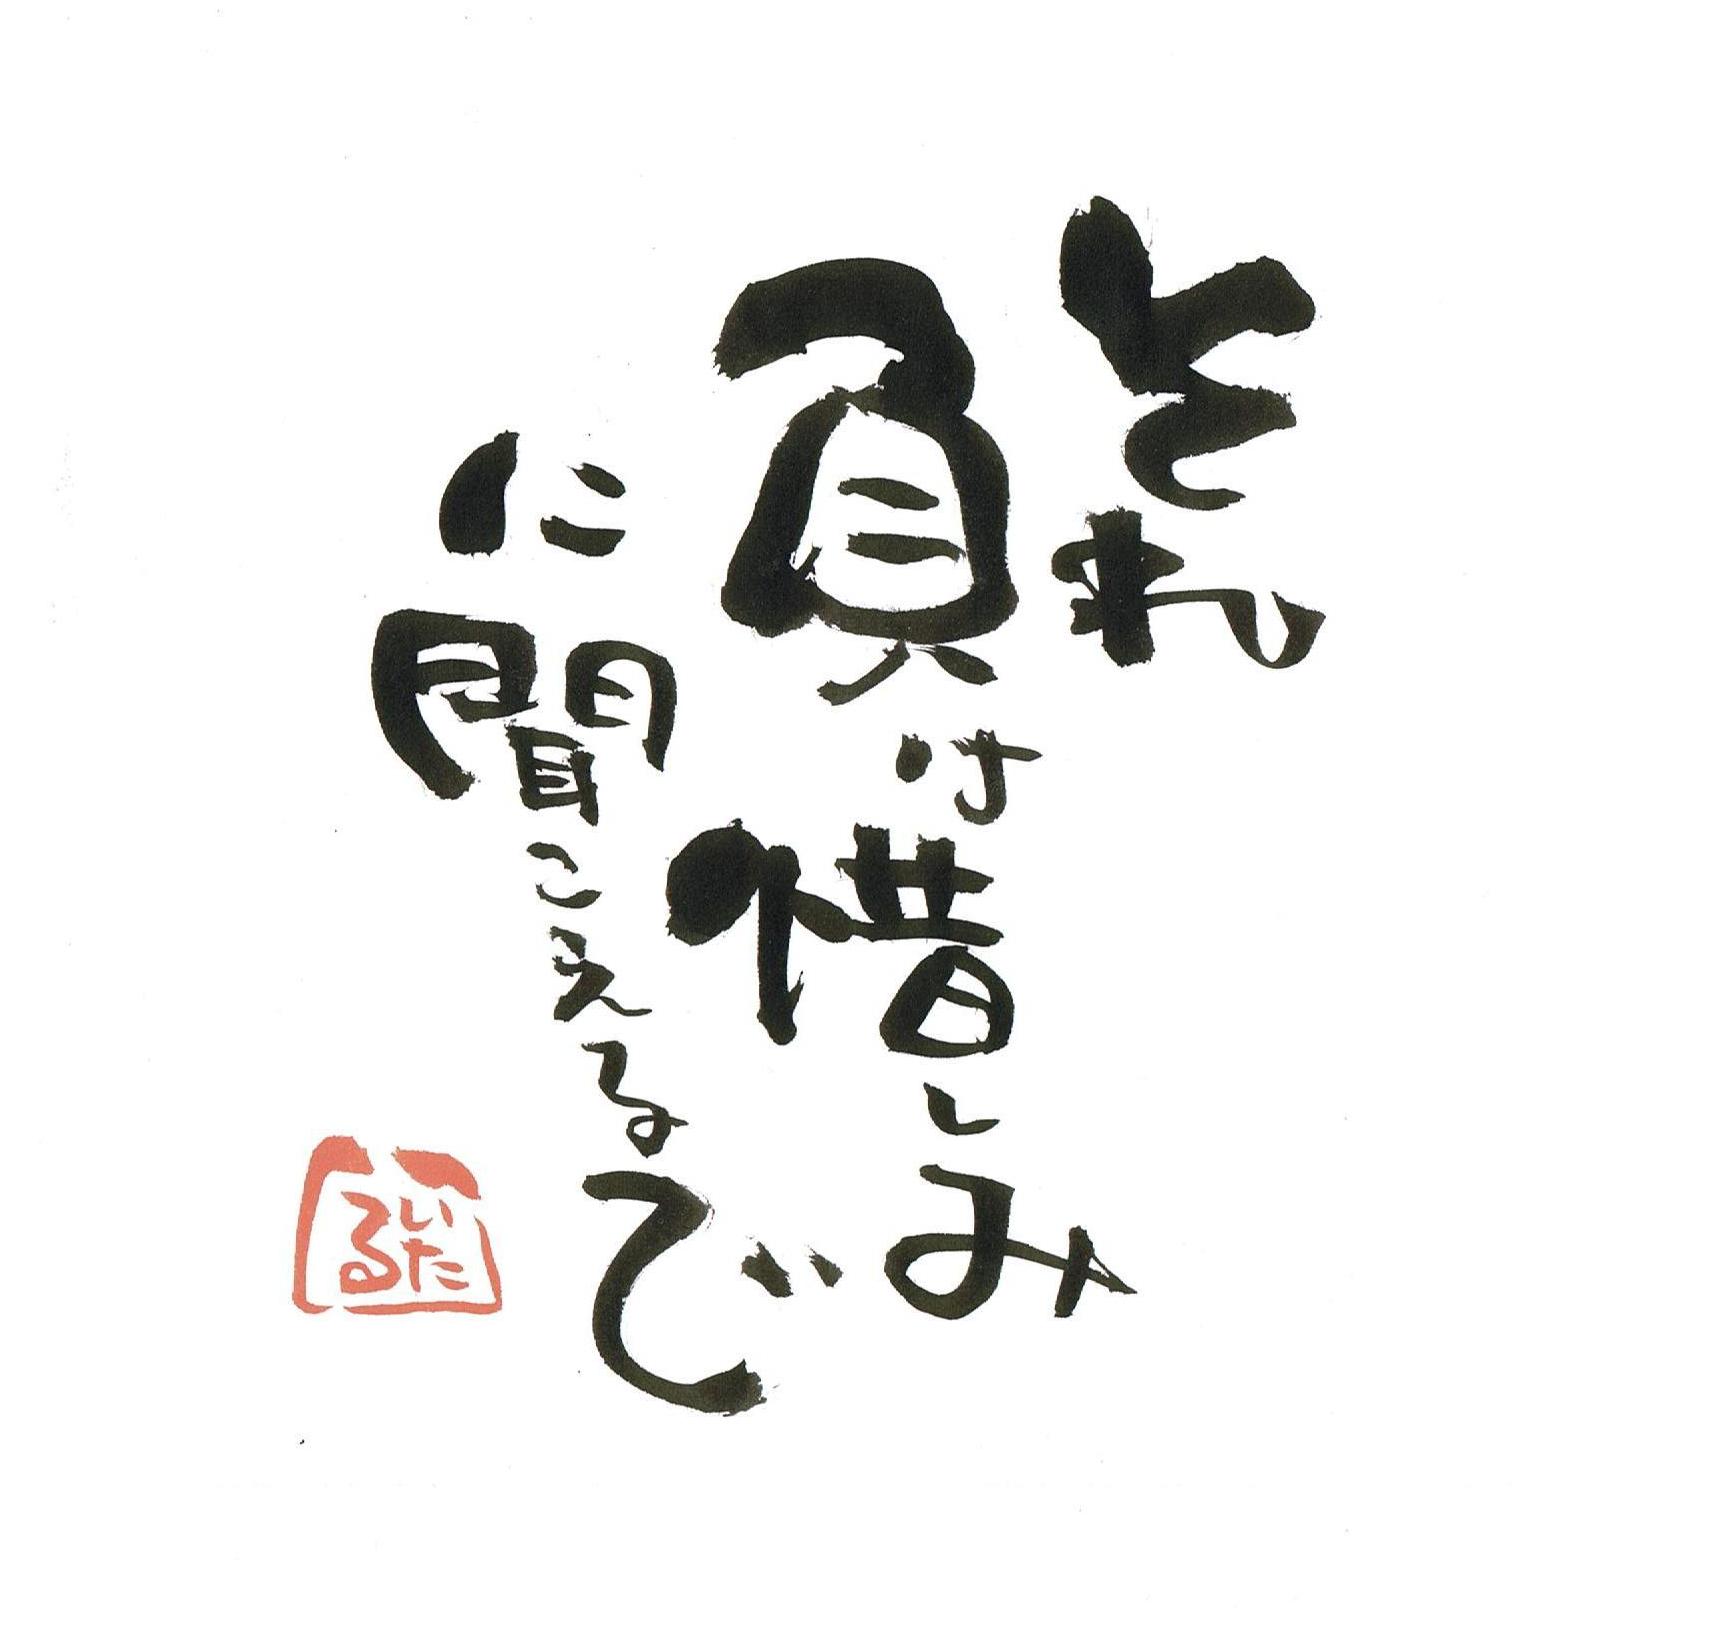 それ
負け惜しみ
に聞こえるで
いた
る